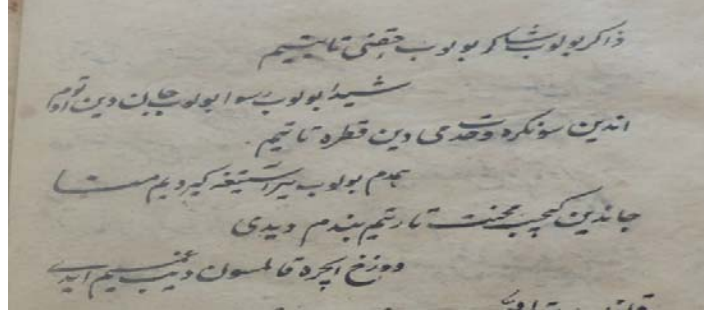 ذاکر بولوب شاکر بولوب حقنی تابتیم
شیدا بولوب رسوا بولوب جان دین اوتوم
اندین سونکره وحدت می دین قطره تاتیم
همدم بولوب یر آستیغه کیردیم منا
جاندین کیچیب محنت تارتیم بندم دیدی
دوزخ ایچره قالمسون دیب غمیم ییدی